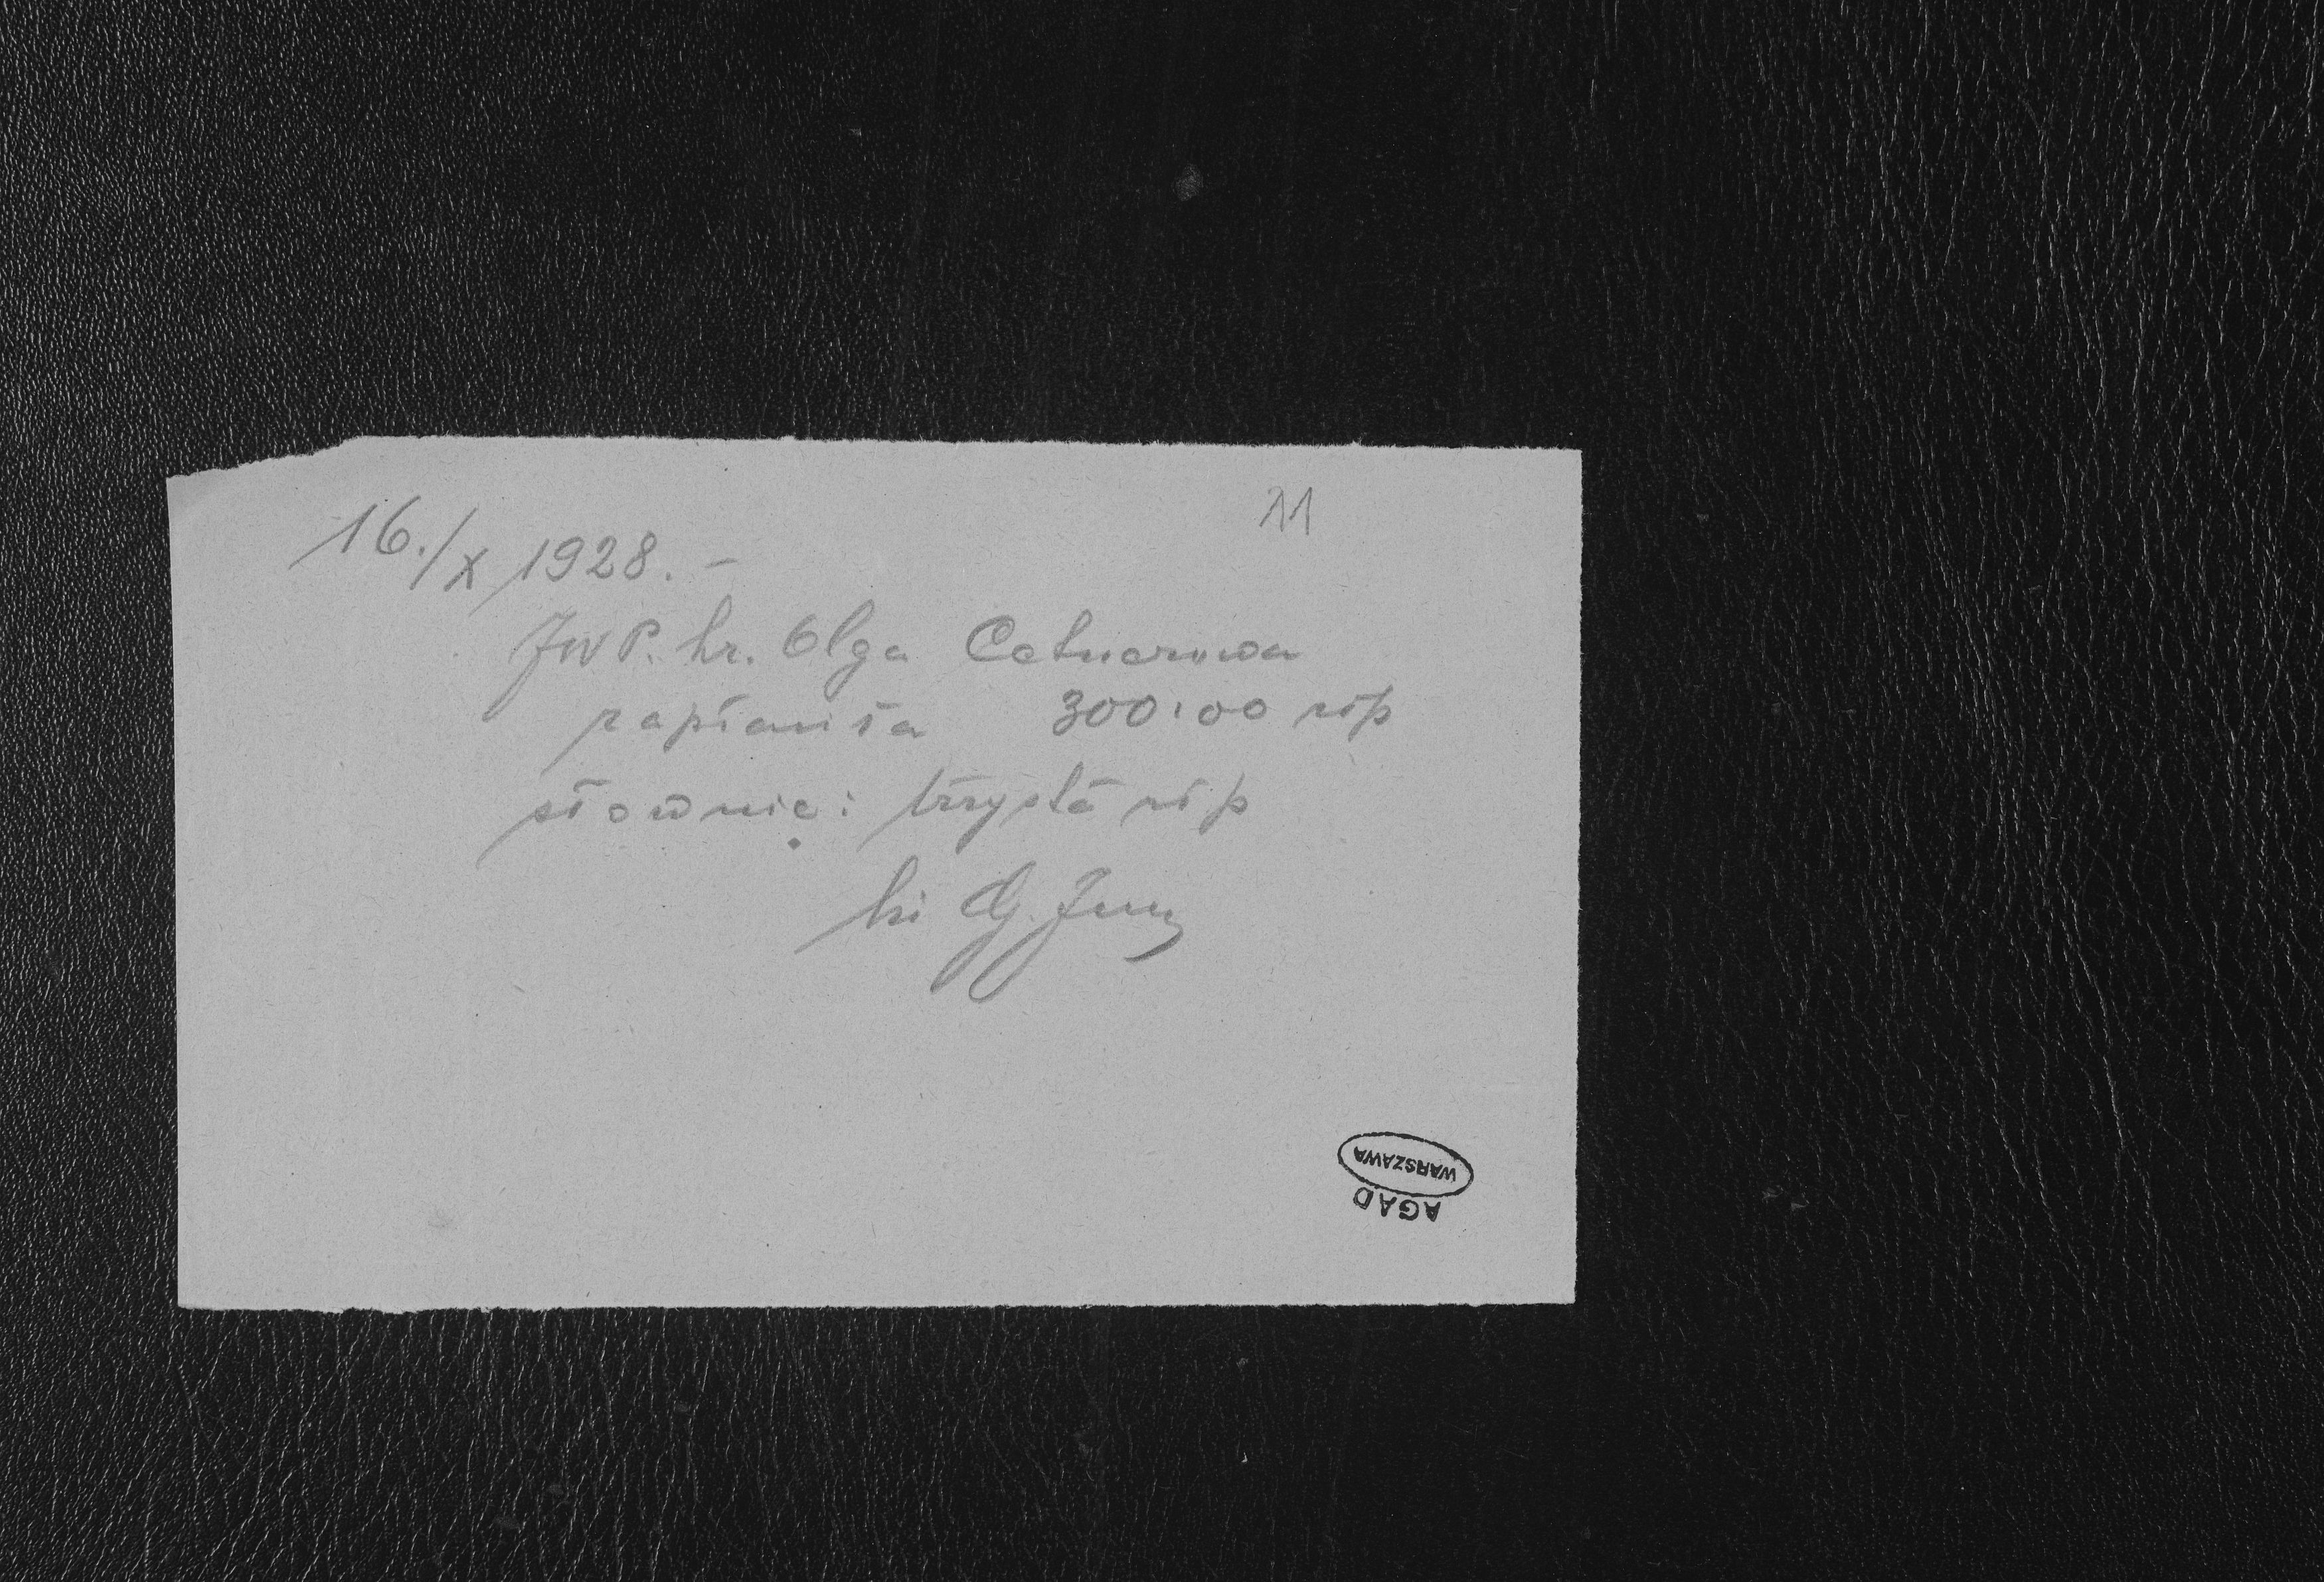 11
16./X 1928. –
JWP. hr. Olga Cetnerowa
zapłaciła 300·00 złp
słownie: trzysta złp
WARSZAWA
AGAD